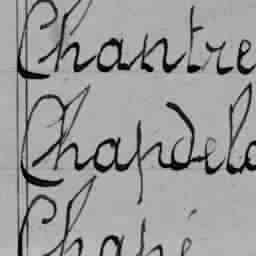 Chantre
Chapdela
Chapé